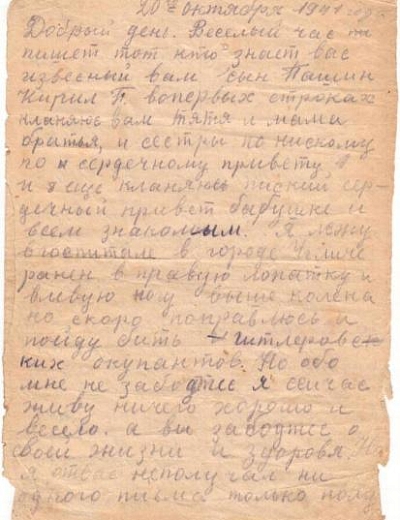 20го октября 1941 год.
Добрый день. Веселый час
пишет тот кто знает вас
известный вам сын Пашин
Кирил Г. вопервых строках
кланяюс вам тятя и мама
братья, и сестры по нискому
по сердечному привету
и я еще кланяюсь ниский сер-
дечный привет бабушке и
всем знакомым. Я лежу
в госпитале в городе
ранен в правую лопатку и
в левую ногу выше колена
но скоро поправлюсь и
пойду бить гитлеровс
ких окупантов. Но обо
мне не заботтес я сейчас
живу ничего хорошо и
весело. а вы заботтес о
своей жизни и здоровя. Но
я отвас неполучал ни
одного писма только